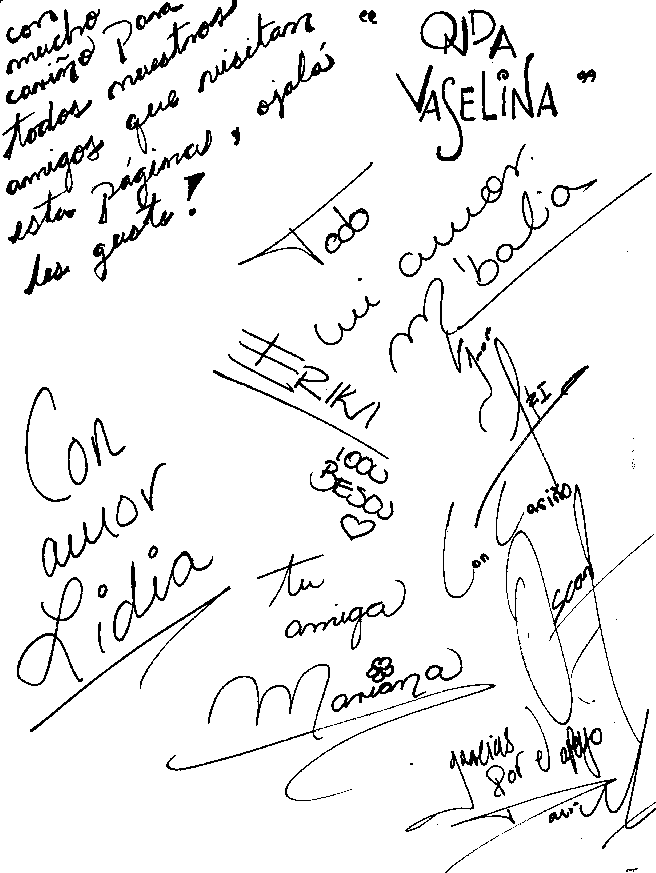 con
mucho
cariño para
todos nuestros
amigos que visitan
esta página, ojalá
les guste!
" ONDA
VASELINA "
Todo
mi amor
M'balia
ERIKA
BESOS
Con
amor
Lidia
Con Cariño
Oscar
tu
amiga
Mariana
gracias
Por el apoyo